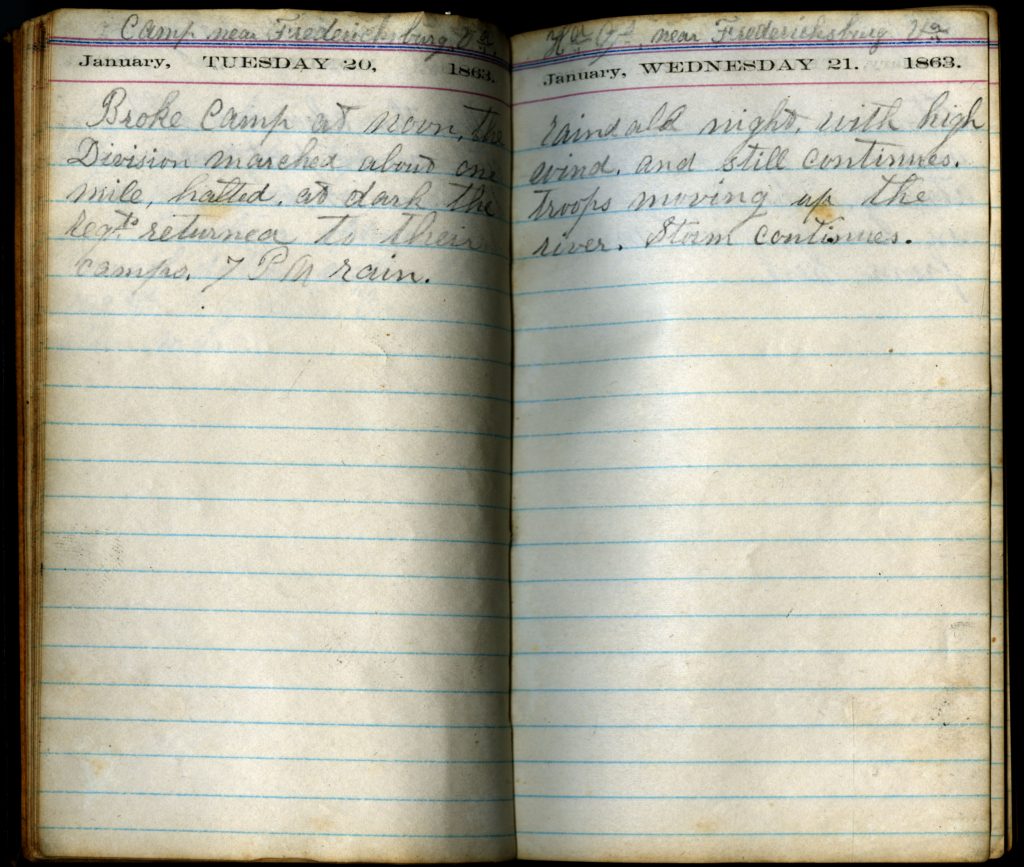 Camp near Fredericksburg Va
January, TUESDAY 20, 1863.
Broke Camp at noon, the
Division marched about one
mile, halted, at dark the
regts returned to their
camps. 7 PM rain.
Hd Qt, near Fredericksburg Va
January, WEDNESDAY 21. 1863.
raind all night, with high
wind, and still continues.
troops moving up the
river. Storm continues.